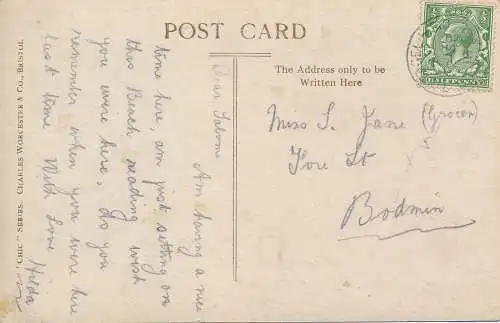 POST CARD
The Address only to be
Written Here
HALFPENNY
Miss S. Jane (Grocer)
Fore St
Bodmin
Dear Salome
Am having a nice
time here, am just setting on
this Beach reading wish
you were here, do you
remember when you were here
last time With Love
Hilda
"CHIC" SERIES. CHARLES WORCESTER & CO., BRISTOL